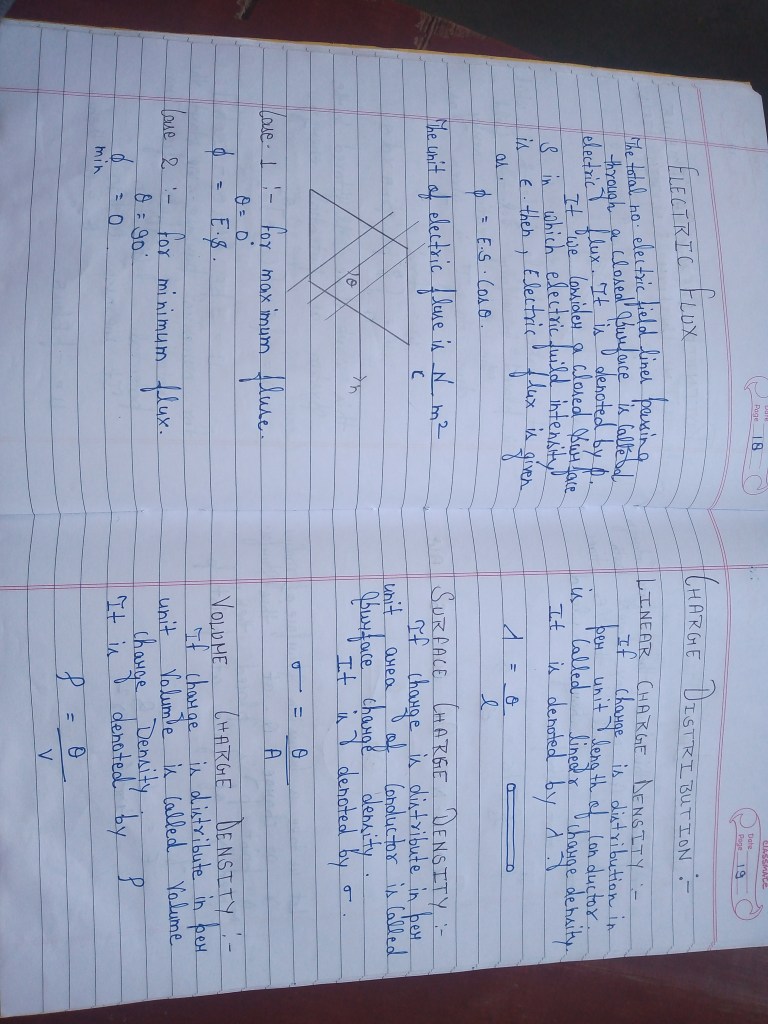 Page 18
ELECTRIC FLUX
The total no. electric field lines passing
through a closed surface is called
electric flux. It is denoted by ϕ.
It we consider a closed surface
S in which electric fuild intensity
is E. then, Electric flux is given
as.
ϕ = E.S. Cosθ.
The unit of electric fluxe is N/C m²
θ
n
Case. 1 :- for maximum fluxe.
θ = 0°
ϕ = E.S.
Case 2 :- for minimum flux.
θ = 90°
ϕ min = 0
classmate
Date
Page 19
CHARGE DISTRIBUTION :-
LINEAR CHARGE DENSITY :-
If charge is distribution in
per unit length of conductor
is called linear charge density.
It is denoted by λ.
λ = Q/l
SURFACE CHARGE DENSITY :-
If charge is distribute in per
unit area of conductor is called
surface charge density.
It is denoted by σ.
σ = Q/A
VOLUME CHARGE DENSITY :-
If charge is distribute in per
unit volume is called volume
charge Density.
It is denoted by ρ
ρ = Q/V